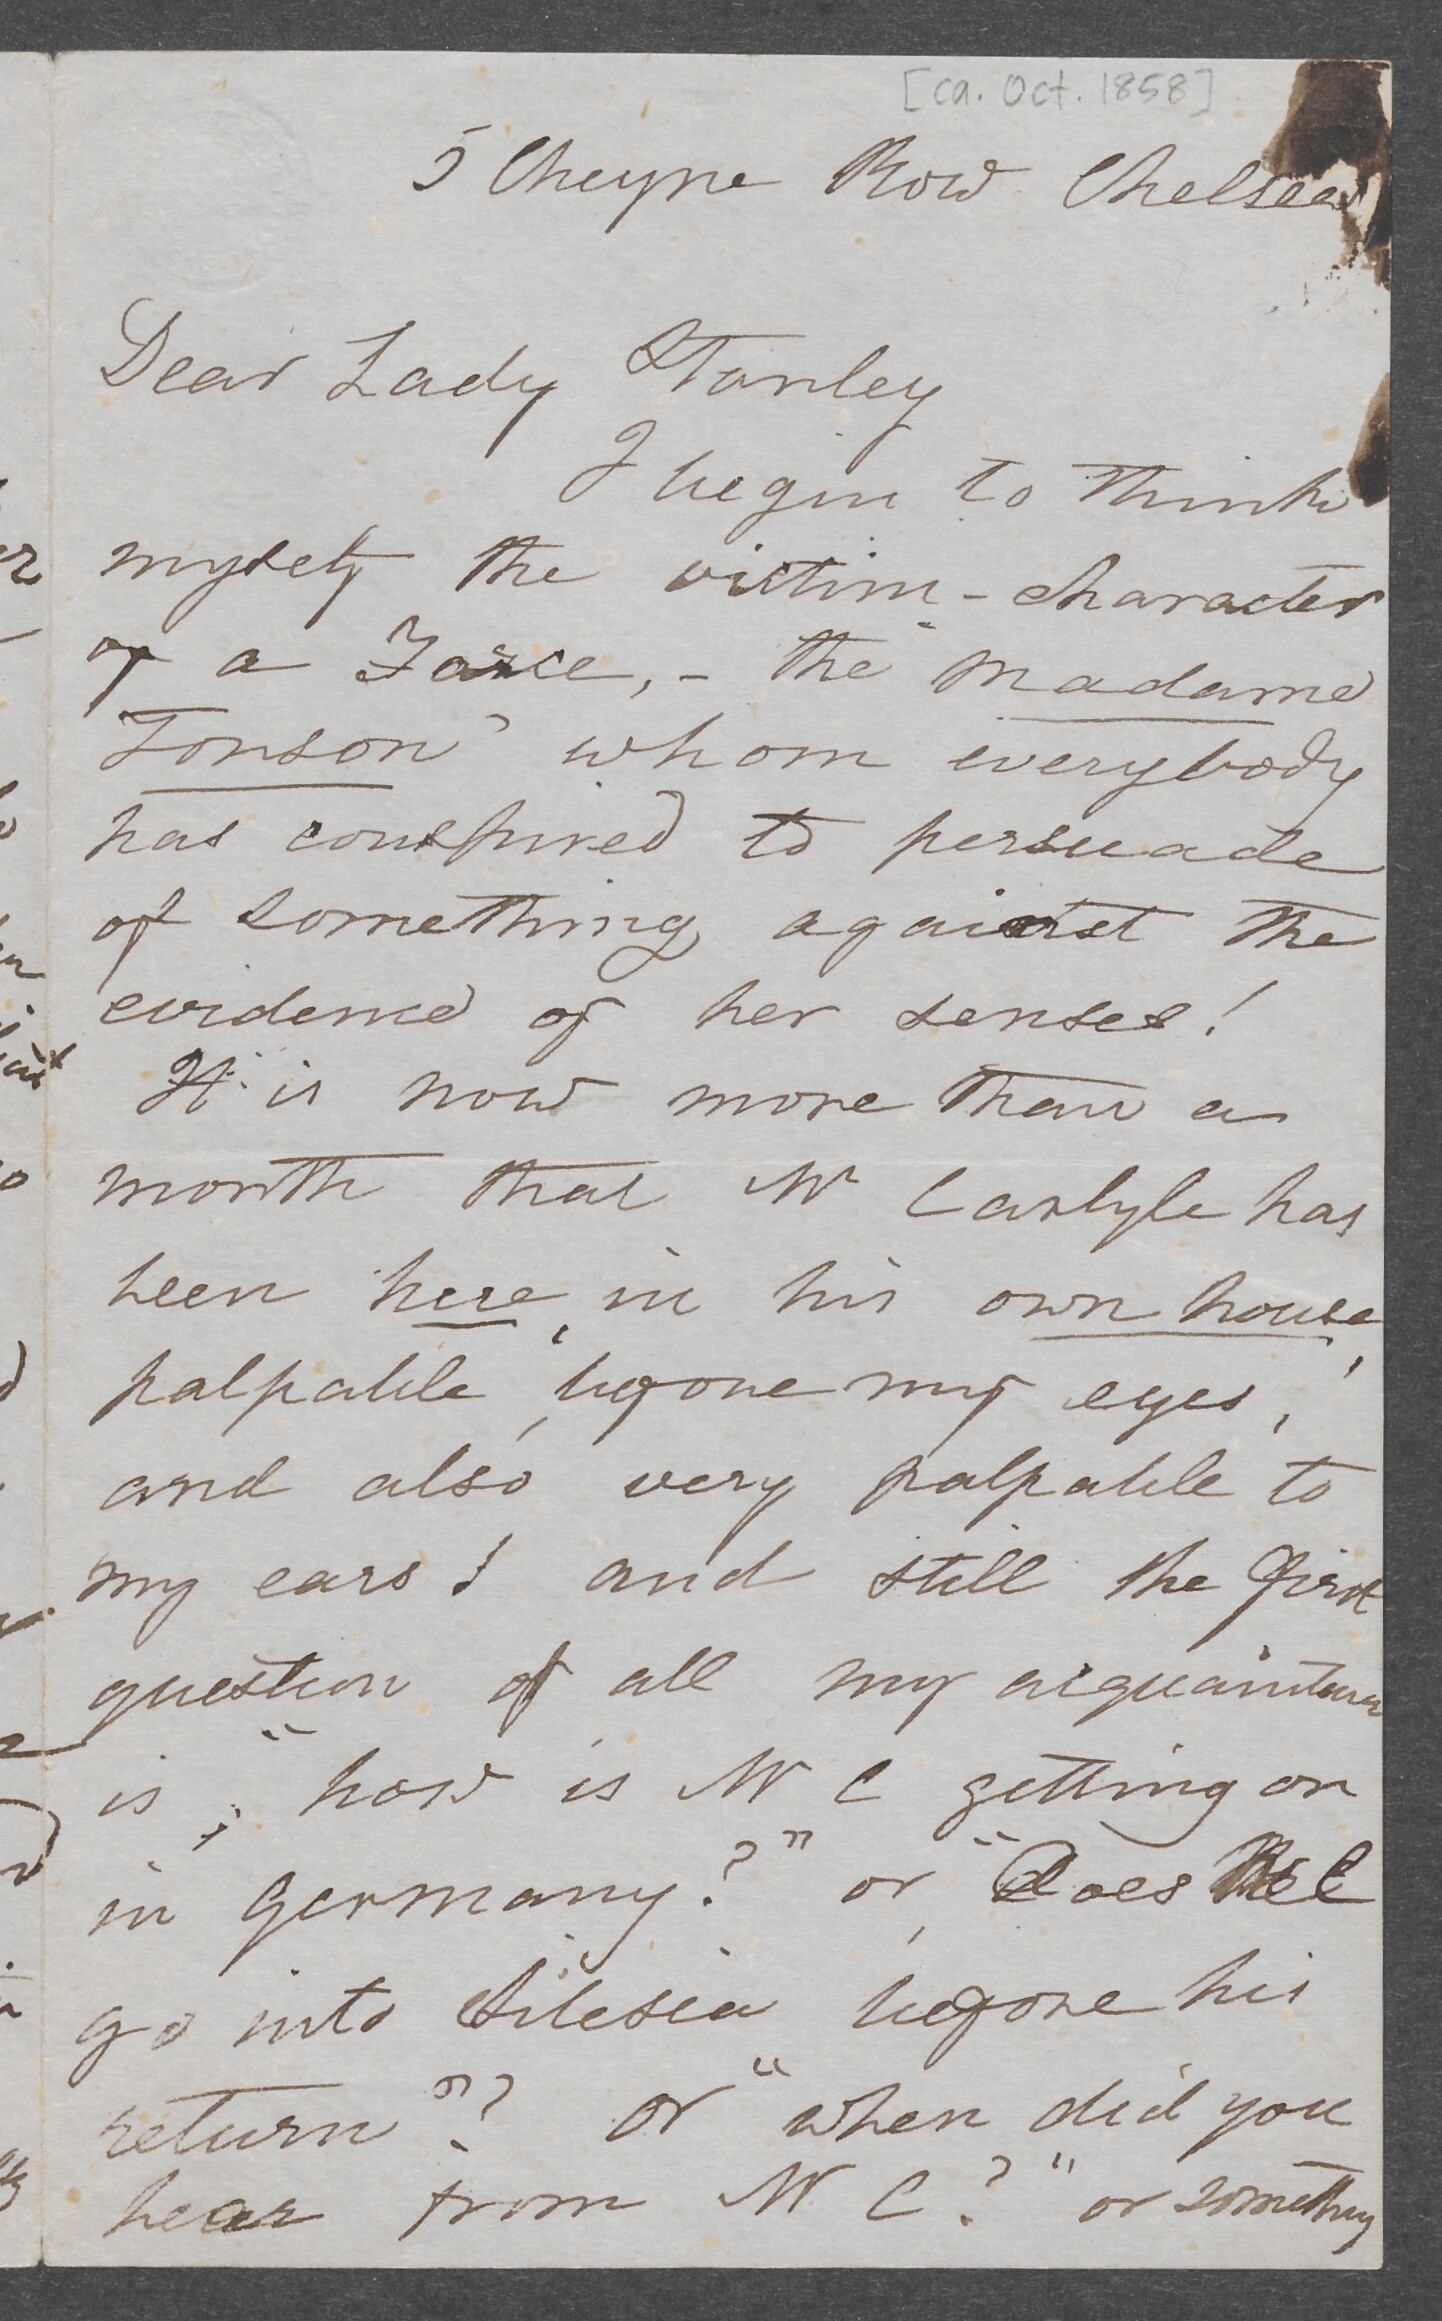 [ca. Oct. 1858]
5 Cheyne Row Chelsea
Dear Lady Stanley
I begin to think
myself the victim-character
of a Farce,- the Madame
Tonson whom everybody
has conspired to persuade
of something against the
evidence of her senses!
It is now more than a
month that Mr Carlyle has
been here, in his own house,
palpable, before my eyes,
and also very palpable to
my ears! and still the first
question of all my acquaintance
is, "how is Mr C getting on
in Germany?" or, "does Mr C
go into Silesia before his
return"? or "when did you
hear from Mr C?" or something